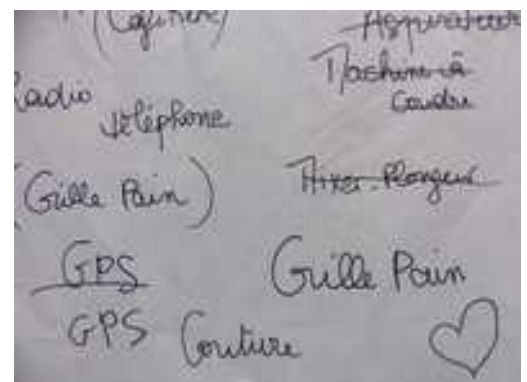 (Cafetière)
Aspirateur
Radio
Machine à
Coudre
téléphone
(Grille Pain)
Mixer-Plongeur
GPS
Grille Pain
GPS Couture